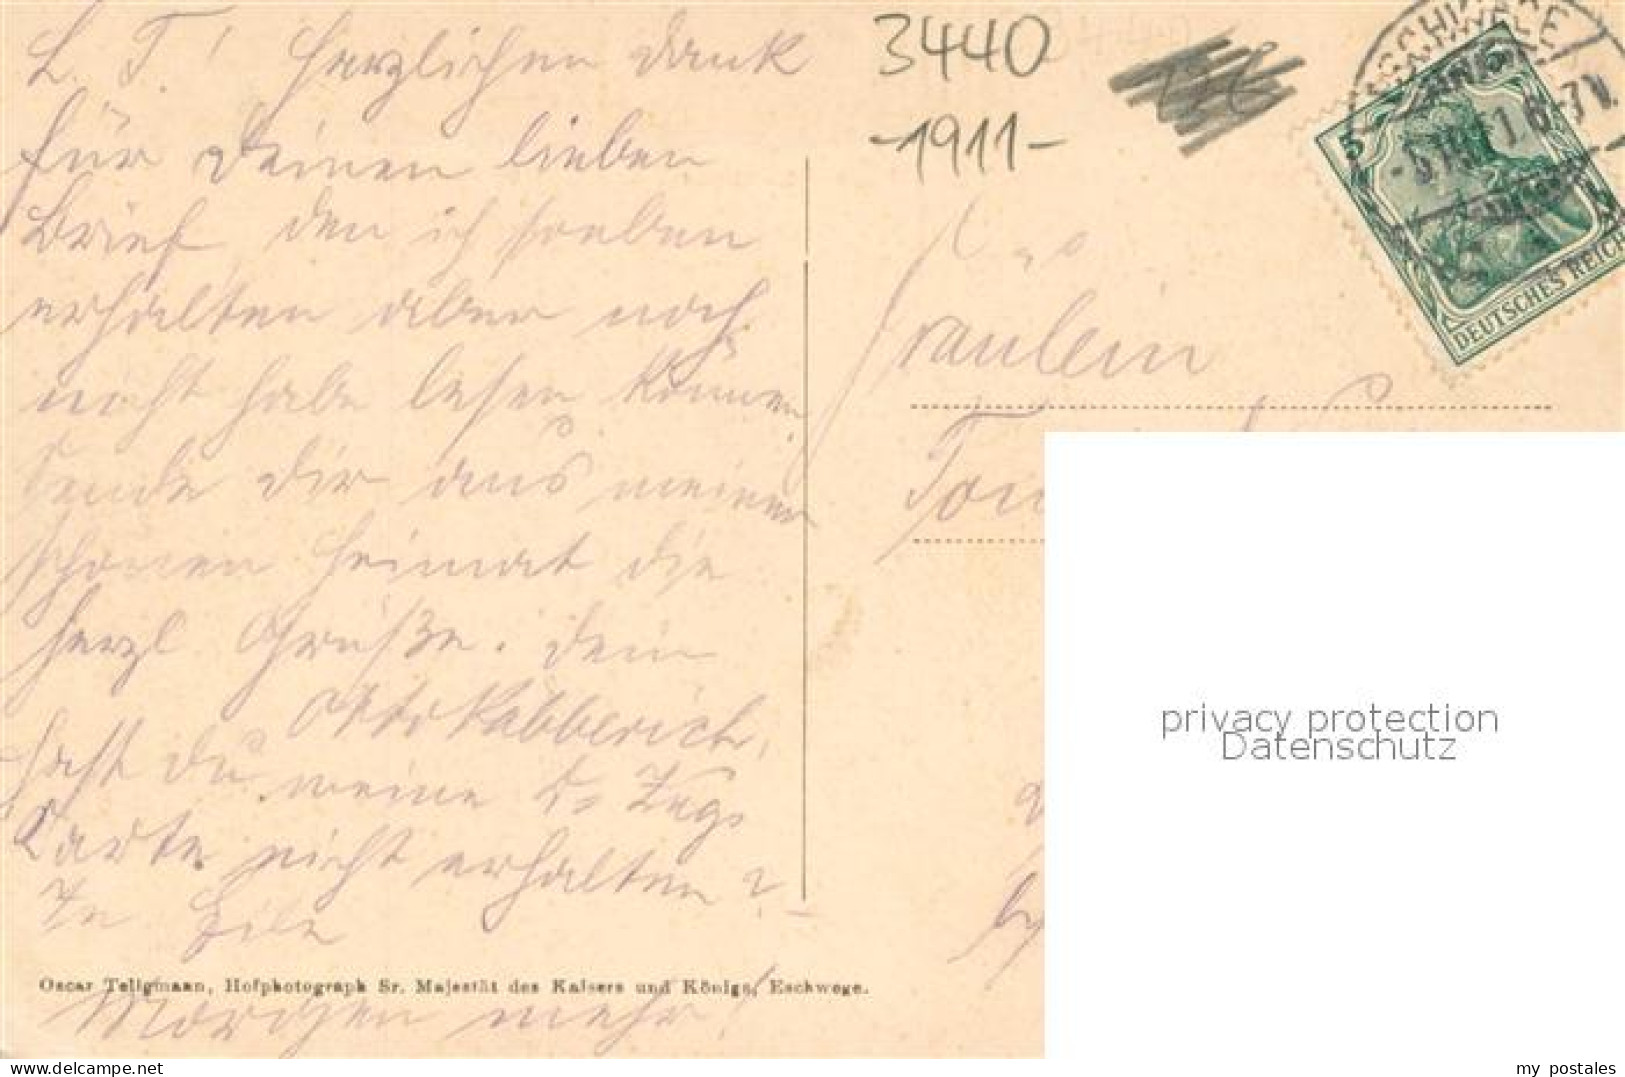 L. T.! Herzlichen Dank
für Deinen lieben
Brief, den ich soeben
erhalten aber noch
nicht habe lesen können.
Sende Dir aus meiner
schönen Heimat die
herzl. Grüße. Dein
Otto
Hast Du meine
Karte nicht erhalten?
In Eile
Morgen mehr!
Oscar Tellgmann, Hofphotograph Sr. Majestät des Kaisers und Königs, Eschwege.
3440
-1911-
5 5
DEUTSCHES REICH
Fräulein
privacy protection
Datenschutz
www.delcampe.net
my_postales